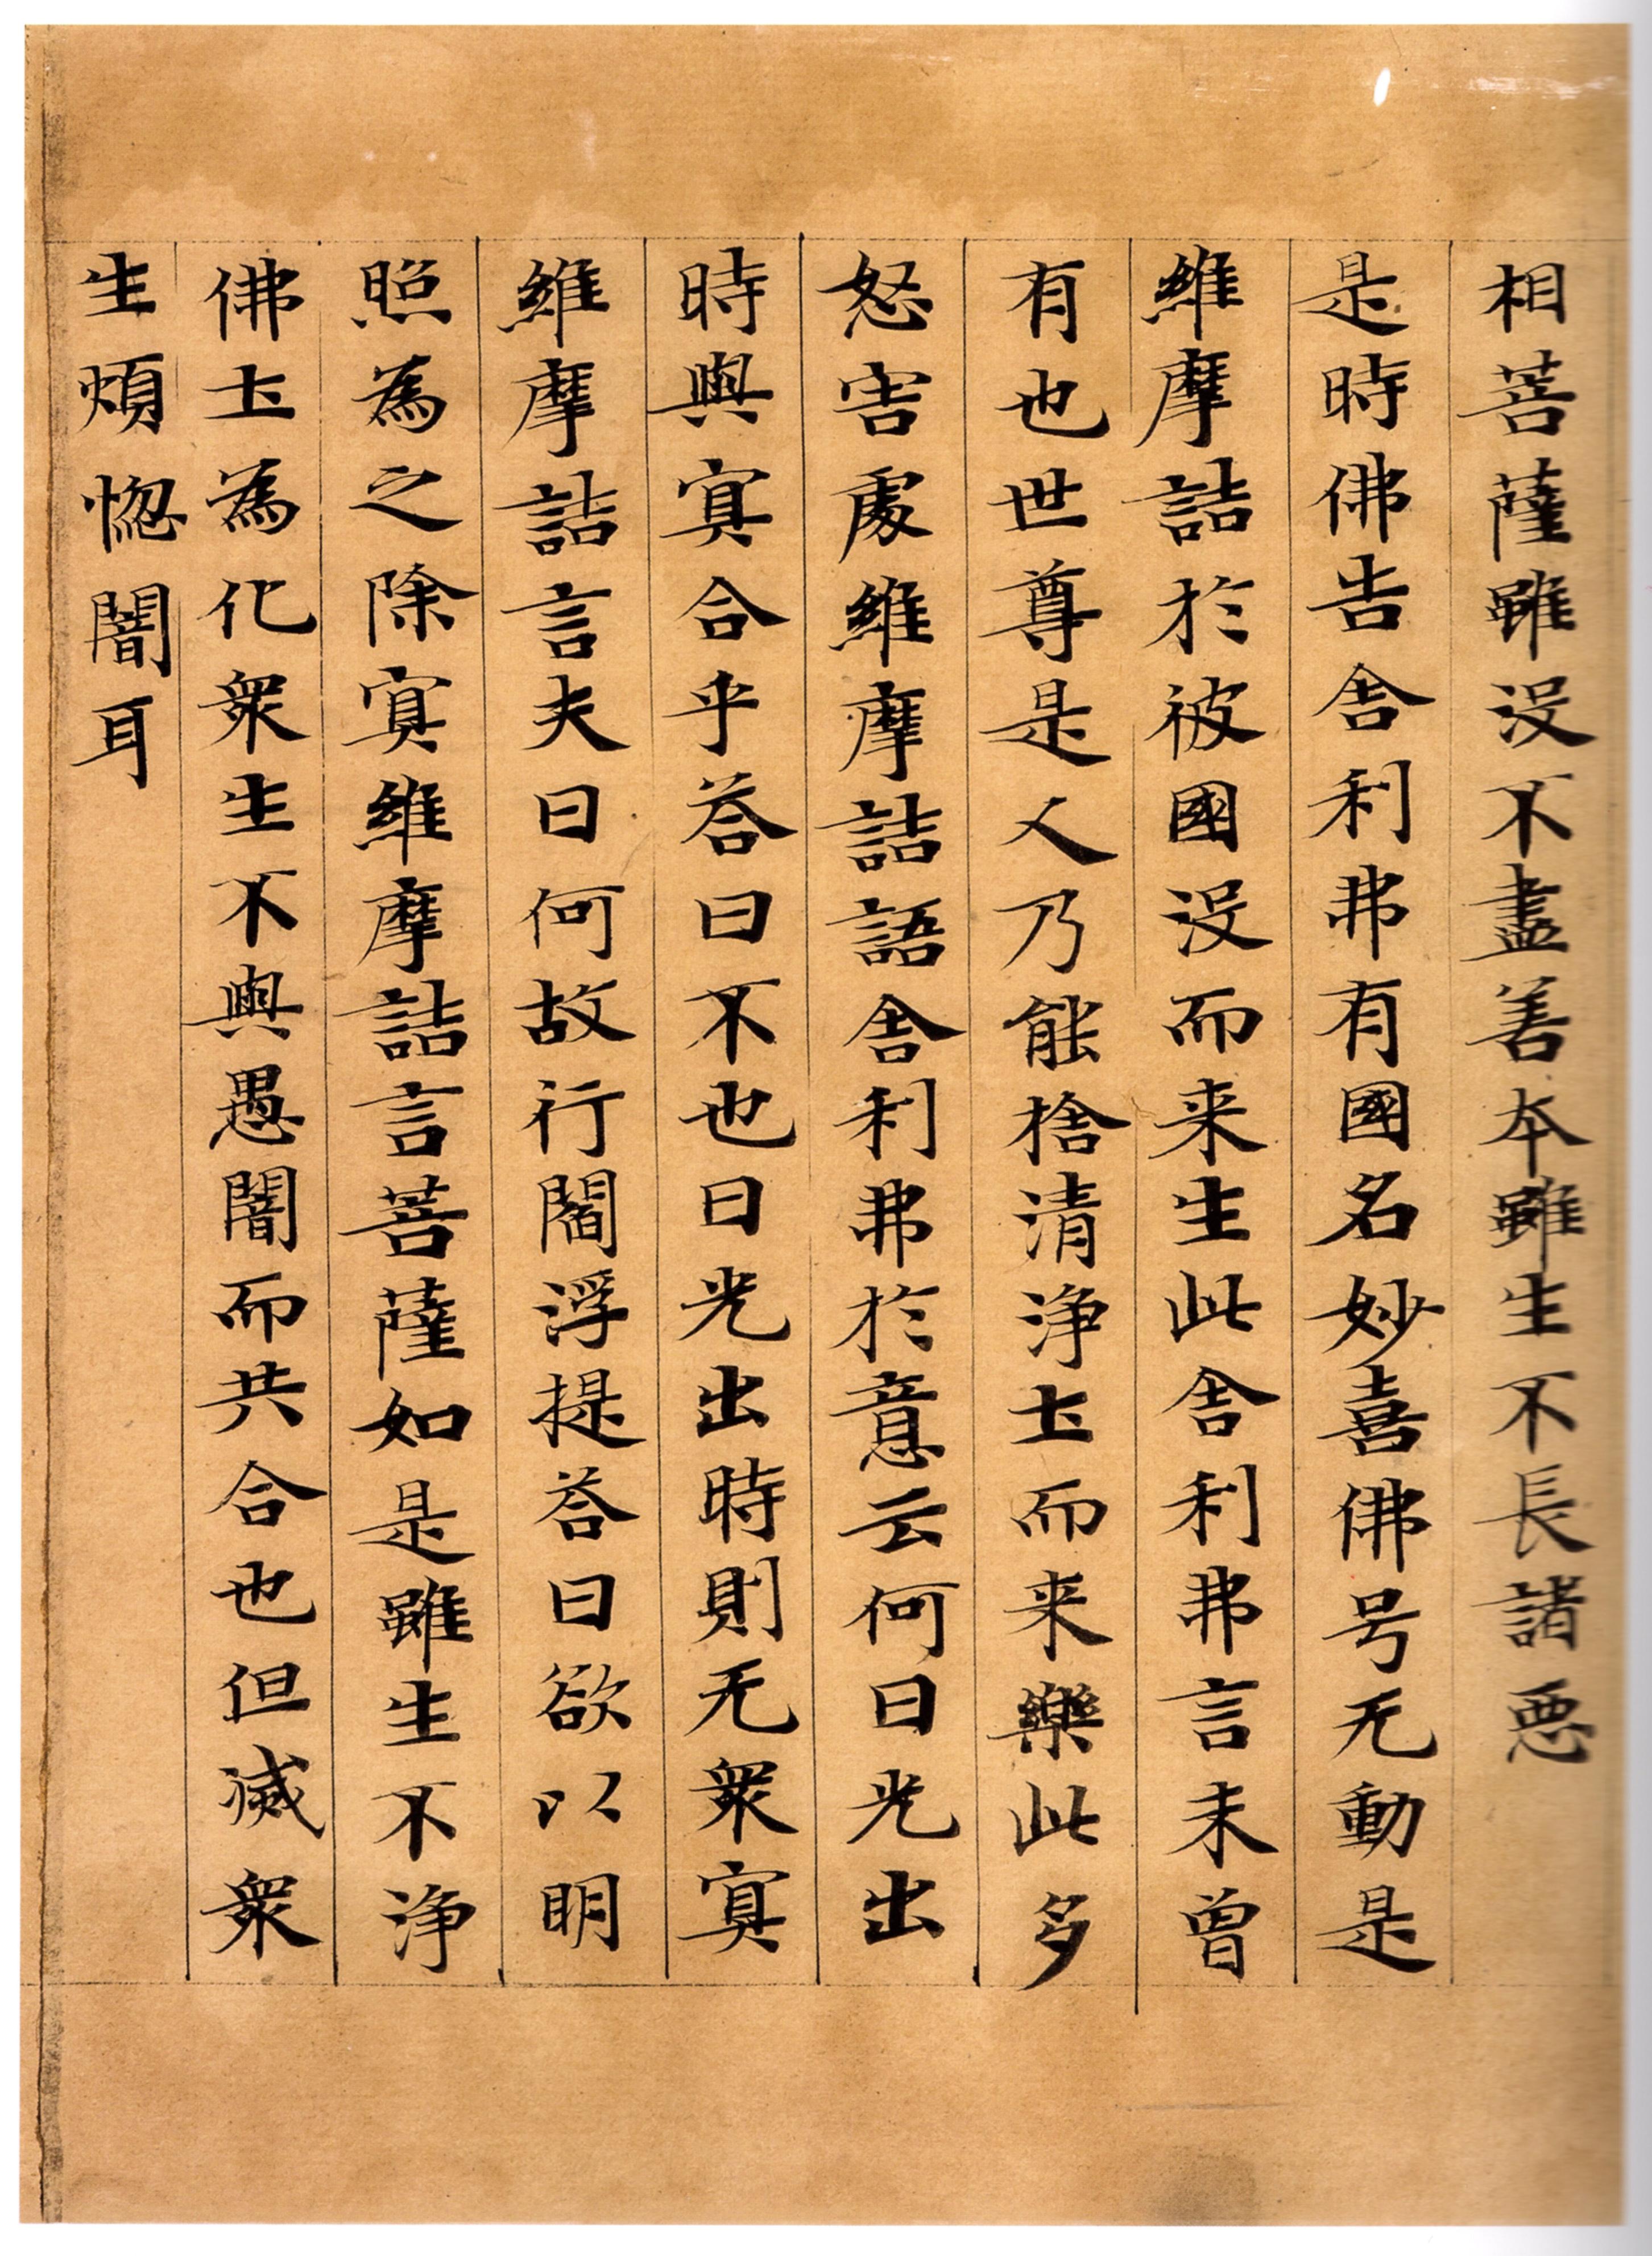 相菩薩雖没不盡善本雖生不長諸惡
是時佛告舍利弗有國名妙喜佛号无動是
維摩詰於彼國没而来生此舍利弗言未曾
有也世尊是人乃能捨清浄土而来樂此多
怒害處維摩詰語舍利弗於意云何日光出
時與冥合乎荅曰不也日光出時則无衆冥
維摩詰言夫日何故行閻浮提荅曰欲以明
照為之除冥維摩詰言菩薩如是雖生不浄
佛土為化衆生不與愚闇而共合也但滅衆
生煩惚闇耳